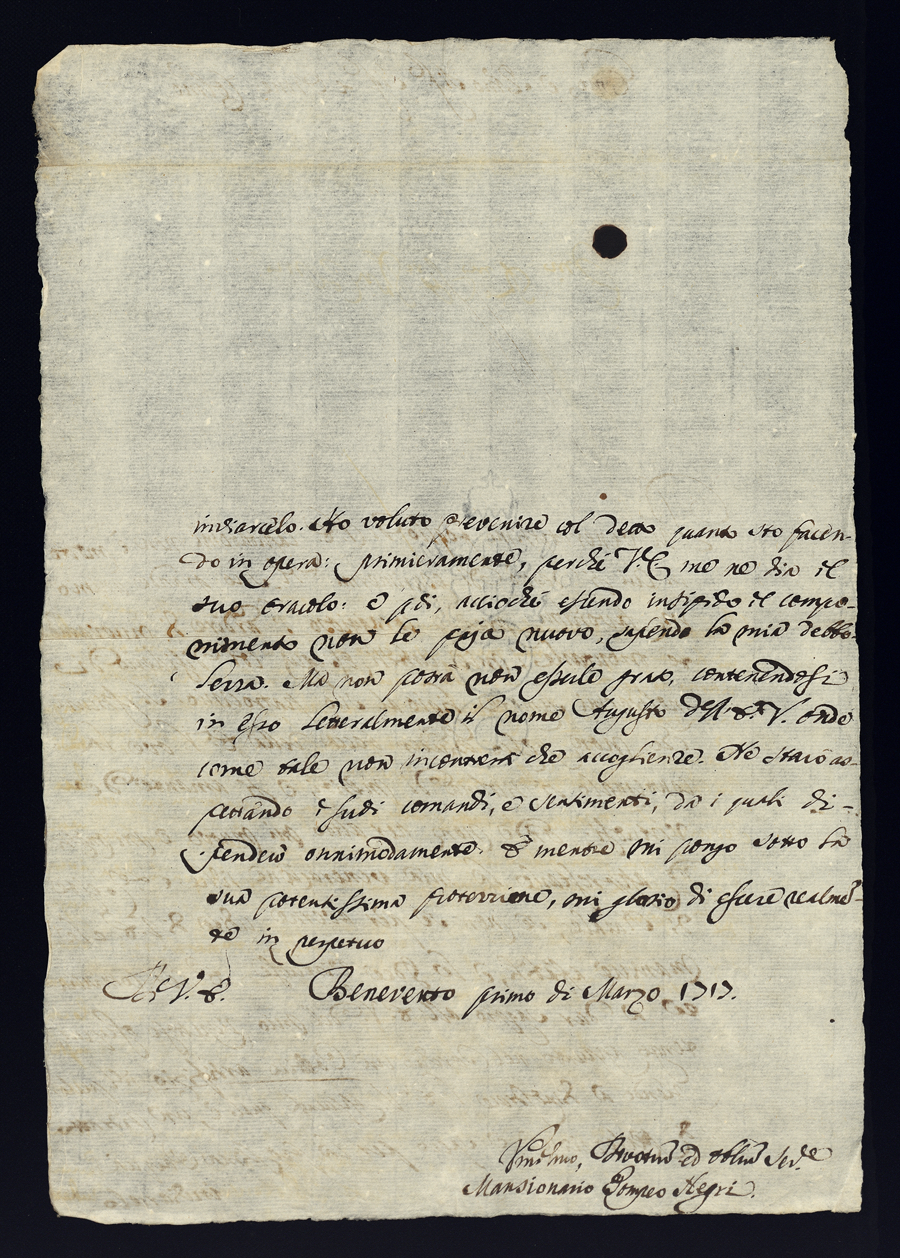 indiarcelo. Ho voluto prevenire col detto quanto sto facen-
do in opera: primieramente, perche V. E. me ne dia il
suo oracolo: e poi, acciochè essendo insipido il compo-
nimento non le paja nuovo, sapendo la mia debbo-
lezza. Ma non potrà non esserle grato, contenendosi
in esso letteralmente il nome Augusto dell' E. V. onde
come tale non incontrerà che accoglienze. Ne starò as-
pettando i suoi comandi, e sentimenti, da i quali di-
penderò onnimodamente. E mentre mi pongo sotto la
sua potentissima protezzione, mi glorio di essere realmẽ-
te in perpetuo
Di V. E. Benevento primo di Marzo 1717.
Vmilmo, Divotmo ed oblmo Serve
Mansionario Pompeo Negri.